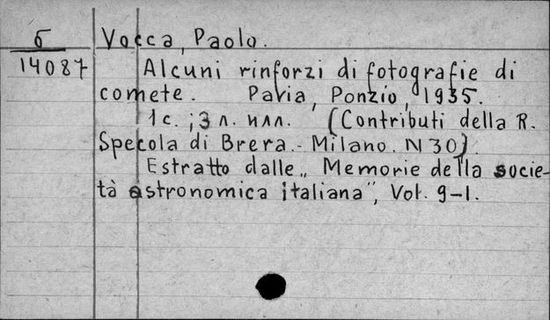 б Vocca, Paolo.
14087 Alcuni rinforzi di fotografie di
comete. Pavia, Ponzio, 1935.
1 с. ; 3 л. илл. (Contributi della R.
Specola di Brera - Milano. N 30)
Estratto dalle „Memorie della socie-
tà astronomica italiana", Vol. 9-1.